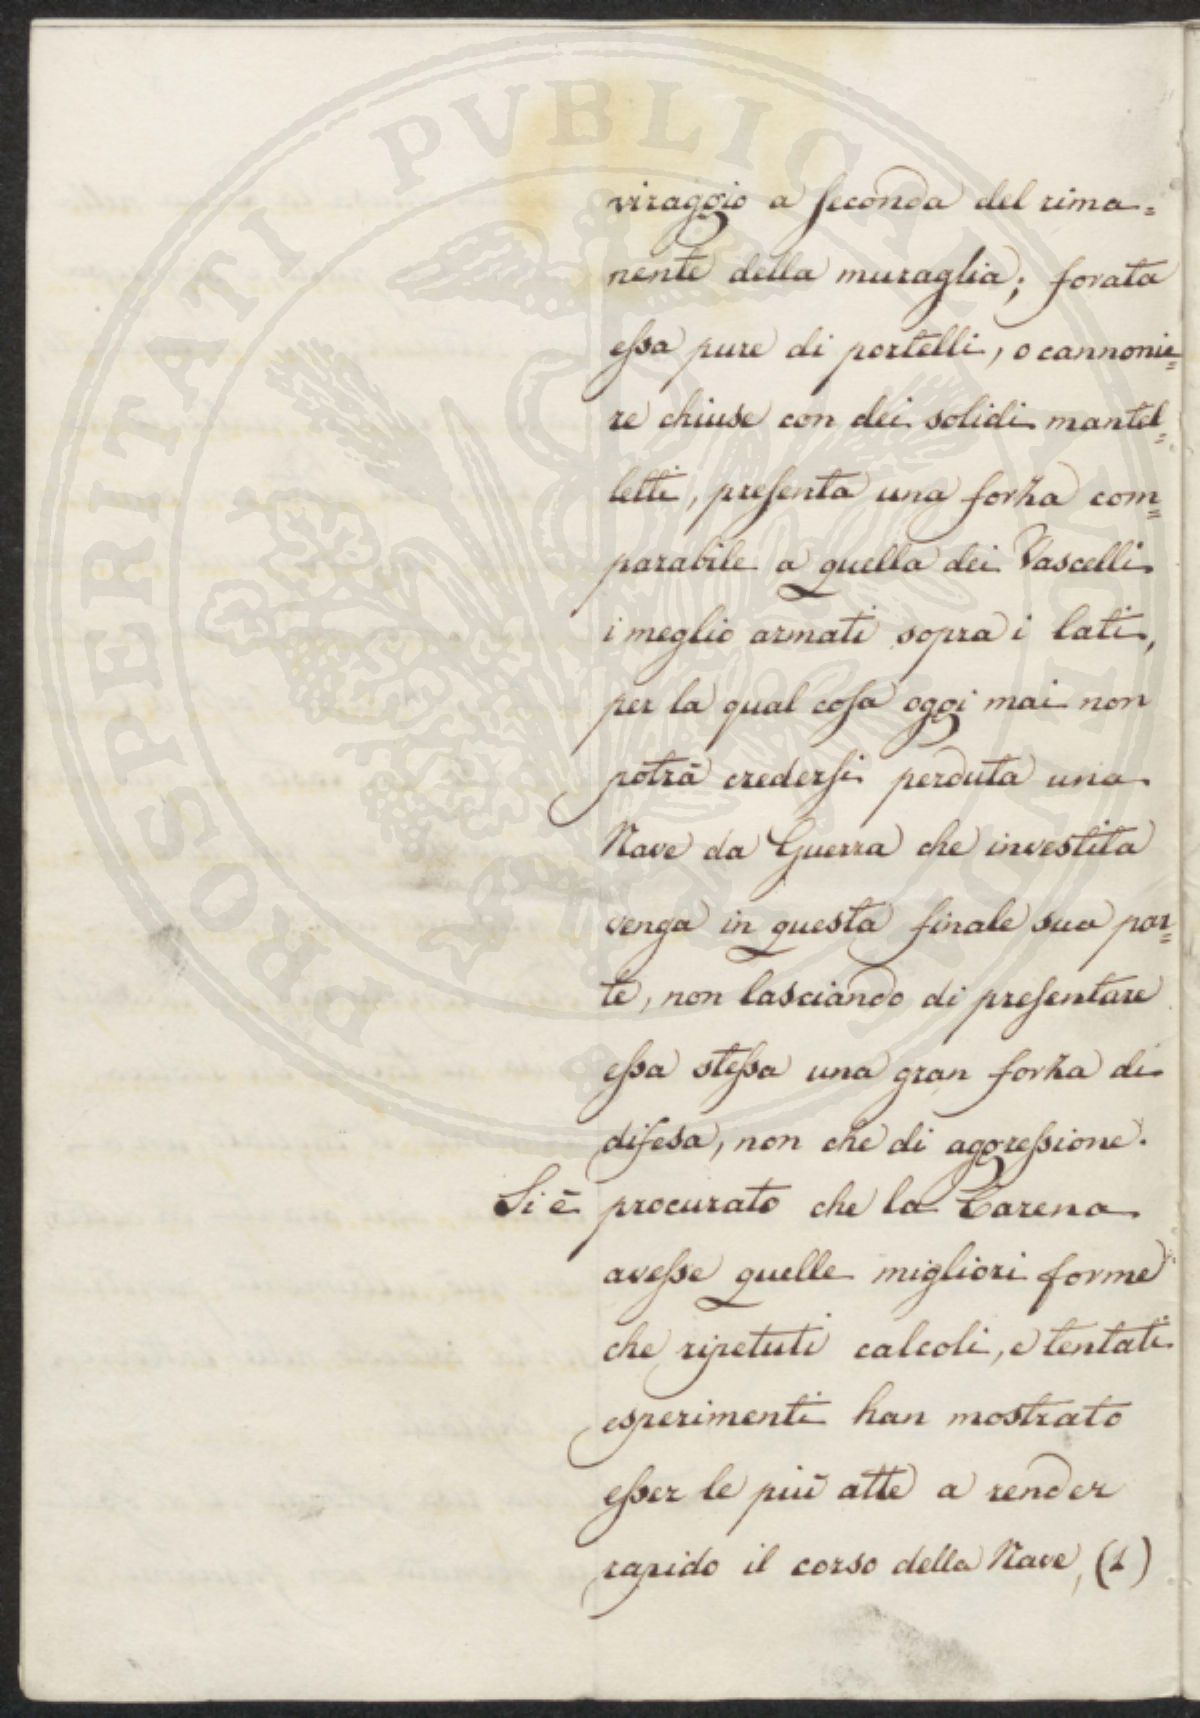 PROSPERITATI PVBLICAE VINDICANDAE
viraggio a seconda del rima=
nente della muraglia; forata
essa pure di portelli, o cannonie=
re chiuse con dei solidi mantel=
letti, presenta una forza com=
parabile a quella dei Vascelli
i meglio armati sopra i lati,
per la qual cosa oggi mai non
potrà credersi perduta una
Nave da Guerra che investita
venga in questa finale sua par=
te, non lasciando di presentare
essa stessa una gran forza di
difesa, non che di aggressione.
Si è procurato che la Carena
avesse quelle migliori forme
che ripetuti calcoli, e tentati
esperimenti han mostrato
esser le più atte a render
rapido il corso della Nave, (1)